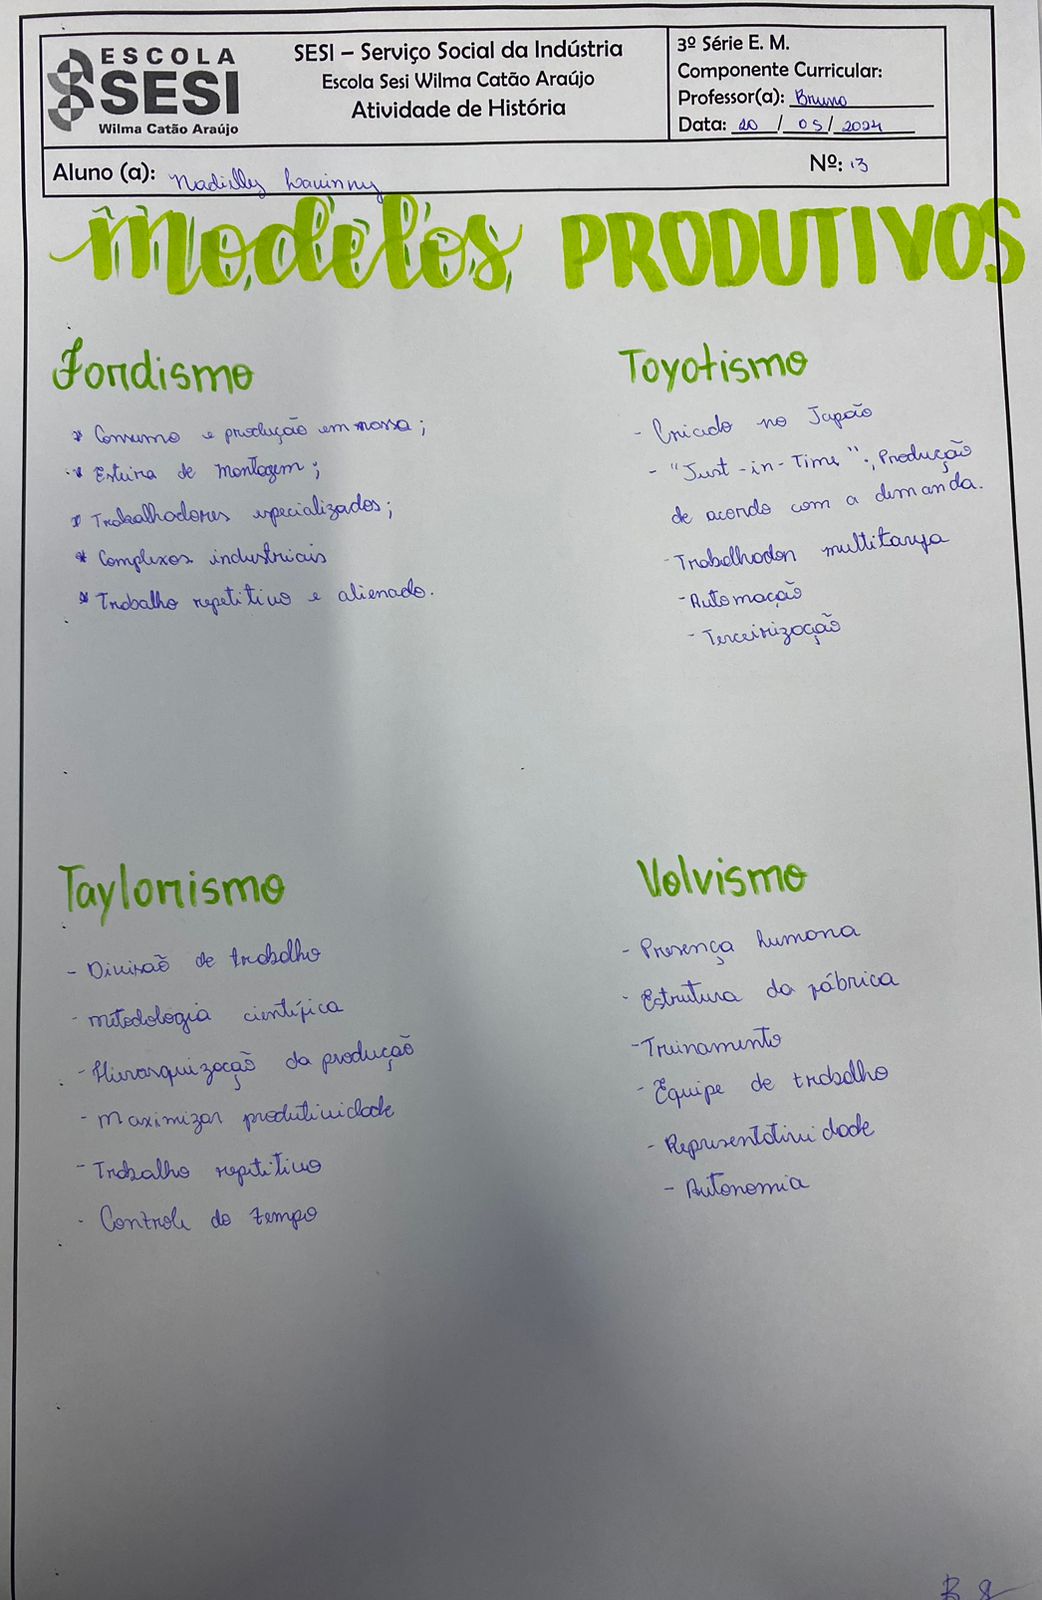 ESCOLA
SESI
Wilma Catão Araújo
SESI – Serviço Social da Indústria
Escola Sesi Wilma Catão Araújo
Atividade de História
3º Série E. M.
Componente Curricular:
Professor(a): Bruno
Data: 20 / 05 / 2024
Aluno (a): Nadielly Lavinny
Nº: 13
Modelos PRODUTIVOS
Fordismo
* Consumo e produção em massa;
* Esteira de montagem;
* Trabalhadores especializados;
* Complexos industriais
* Trabalho repetitivo e alienado.
Toyotismo
- Criado no Japão
- "Just-in-Time"; Produção
de acordo com a demanda.
- Trabalhador multitarefa
- Automação
- Terceirização
Taylorismo
- Divisão de trabalho
- metodologia científica
- Hierarquização da produção
- Maximizar produtividade
- Trabalho repetitivo
- Controle do tempo
Volvismo
- Presença humana
- Estrutura da fábrica
- Treinamento
- Equipe de trabalho
- Representatividade
- Autonomia